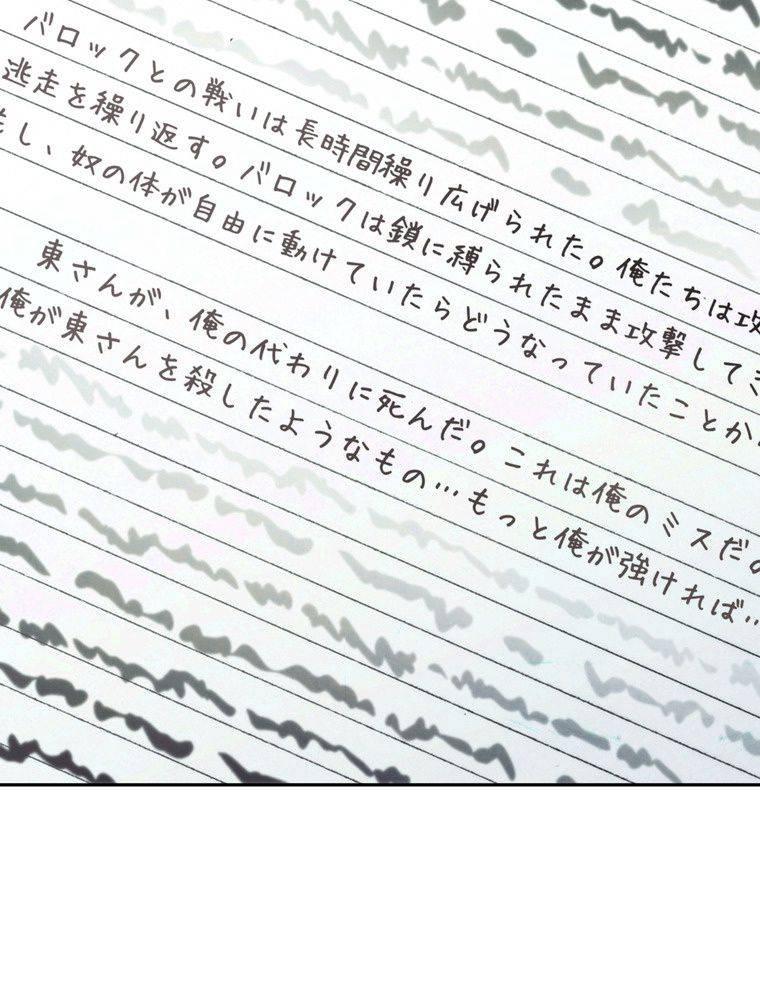 バロックとの戦いは長時間繰り広げられた。俺たちは攻
逃走を繰り返す。バロックは鎖に縛られたまま攻撃してき
し、奴の体が自由に動けていたらどうなっていたことか
東さんが、俺の代わりに死んだ。これは俺のミスだ
俺が東さんを殺したようなもの…もっと俺が強ければ…